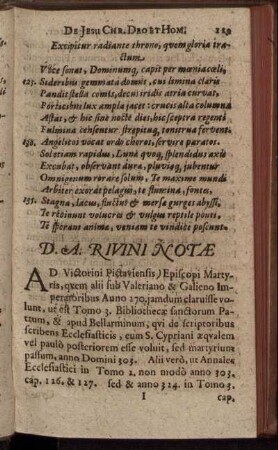 DE JESU CHR. DEO ET HOM. 129
Excipitur radiante throno, quem gloria tractum
Voce sonat, Dominumq, capit per munia cœli,
125. Sideribus gemmata domus, cui limina claris
Pandit stella comis, decus iridis atria curvat,
Porticibus lux ampla jacet: crucis alta columna
Astat, & hic sine nocte dies, hic sceptra regenti
Fulmina censentur strepituq, tonitrua fervent.
130. Angelicos vocat ordo choros, servire paratos.
Sol etiam rapidus, Luna quoq, splendidus axis
Excubat, observant dura, pluviæq, jubentur
Omnigenum rorare solum, Te maxime mundi
Arbiter exorat pelagus, te flumina, fontes,
135. Stagna, lacus, fluctus & mersa gurges abyssi,
Te retinunt volucres & vulgus reptile ponti,
Te sperant animæ, veniam te vindice poscunt.
D. A. RIVINI NOTÆ
AD Victorini Pictaviensis, Episcopi Martyris,
quem alii sub Valeriano & Galieno Imperatoribus
Anno 270. jamdum claruisse volunt,
ut est Tomo 3. Bibliothecæ sanctorum Patrum,
& apud Bellarminum, qvi de scriptoribus
scribens Ecclesiasticis, eum S. Cypriani æqvalem
vel paulò posteriorem esse voluit, sed martyrium
passum, anno Domini 303. Alii verò, ut Annales
Ecclesiastici in Tomo 2. non modò anno 303.
cap. 126. & 127. sed & anno 324. in Tomo 3.
I cap.